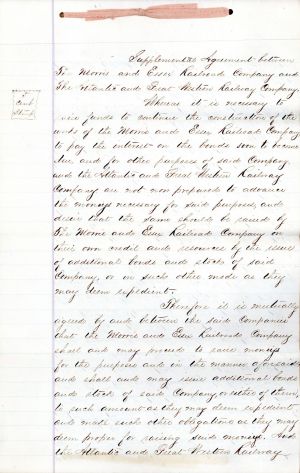 Supplemental Agreement between
The Morris and Essex Railroad Company and
The Atlantic and Great Western Railway Company.
Whereas it is necessary to
raise funds to continue the construction of the
works of the Morris and Essex Railroad Company
to pay the interest on the bonds soon to become
due, and for other purposes of said Company
and the Atlantic and Great Western Railway
Company are not now prepared to advance
the moneys necessary for said purposes, and
desire that the same should be raised by
The Morris and Essex Railroad Company on
their own credit and resources by the issue
of additional bonds and stocks of said
Company, or in such other mode as they
may deem expedient.
5
Cent
Stamp
Therefore it is mutually
agreed by and between the said Companies
that the Morris and Essex Railroad Company
shall and may proceed to raise moneys
for the purposes and in the manner aforesaid
and shall and may issue additional bonds
and stock of said Company, or either of them,
to such amount as they may deem expedient
and make such other obligations as they may
deem proper for raising such moneys. And
the Atlantic and Great Western Railway